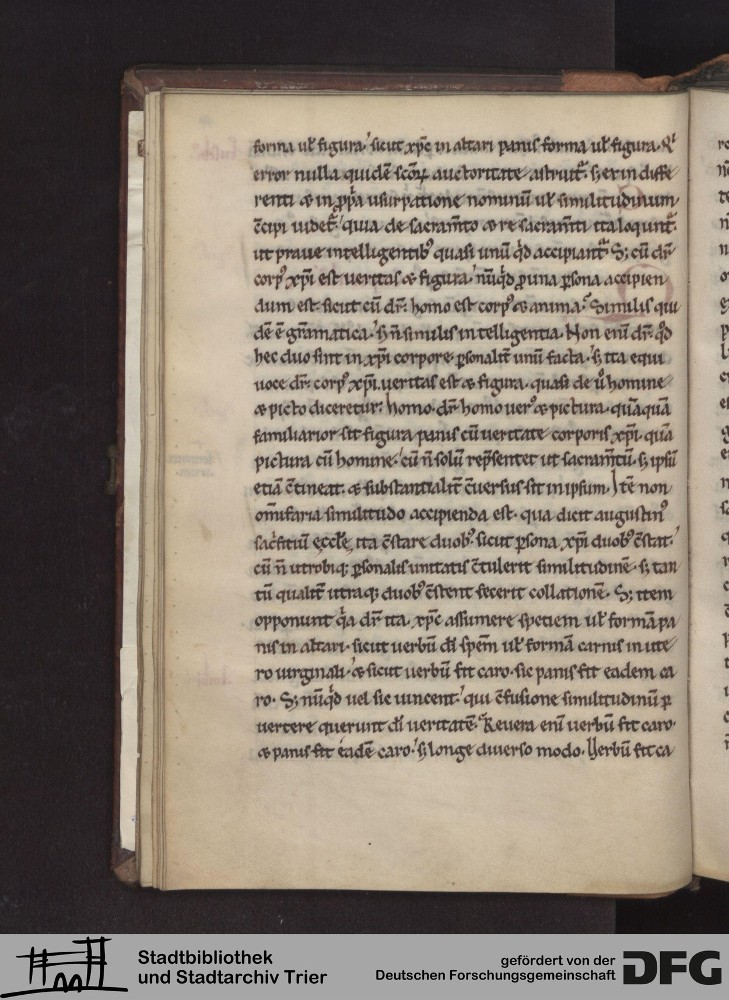 forma ul̄ figura. sicut xp̄c in altari panis forma ul̄ figura.
error nulla quidē scōꝝ auctoritate astruit᷑. s; ex in diffe
renti & in ꝓp̄a usurpatione nominum ul̄ similitudinum
c̄cipi uidet᷑. quia de sacram̄to & re sacram̄ti ita loqunt᷑.
ut praue intelligentib; quasi unū qͥd accipiant᷑. S; cū dr̄
corpꝰ xp̄i est ueritas & figura. nūqͥd ꝓ una ꝑsona accipien
dum est. sicut cū dr̄. homo est corpꝰ & anima. Similis qui
dē ē gramatica. s; n̄ similis intelligentia. Non enī dr̄ qd̄
hec duo sint in xp̄i corpore ꝑsonalit̄ unū facta. s; ita equi
uoce dr̄. corpꝰ xp̄i ueritas est & figura. quasi de uͦ homine
& picto diceretur. homo. dr̄ homo uerꝰ & pictura. quāquā
familiarior sit figura panis cū ueritate corporis xp̄i. quā
pictura cū homine. cū n̄ solū rep̄sentet ut sacram̄tū. s; ipsū
etiā c̄tineat. & substantialit̄ c̄uersus sit in ipsum. Itē non
omifaria similitudo accipienda est. qua dicit augustinꝰ
sacͥficiū ęcclę. ita c̄stare duob;. sicut ꝑsona xp̄i duob; c̄stat.
cū n̄ utrobiq; ꝑsonalis unitatis c̄tulerit similitudinē. s; tan
tū qualit̄ utraq; duob; c̄stent fecerit collationē. S; item
opponunt qͥa dr̄ ita. xp̄c assumere speciem ul̄ formā pa
nis in altari. sicut uerbū dī spēm ul̄ formā carnis in ute
ro uirginali. & sicut uerbū fit caro. sic panis fit eadem ca
ro. S; nūqͥd uel sic uincent. qui c̄fusione similitudinū ꝑ
uertere querunt dī ueritatē. Reuera enī uerbū fit caro.
& panis fit eadē caro. s; longe diuerso modo. Uerbū fit ca
Stadtbibliothek
und Stadtarchiv Trier
gefördert von der
Deutschen Forschungsgemeinschaft
DFG